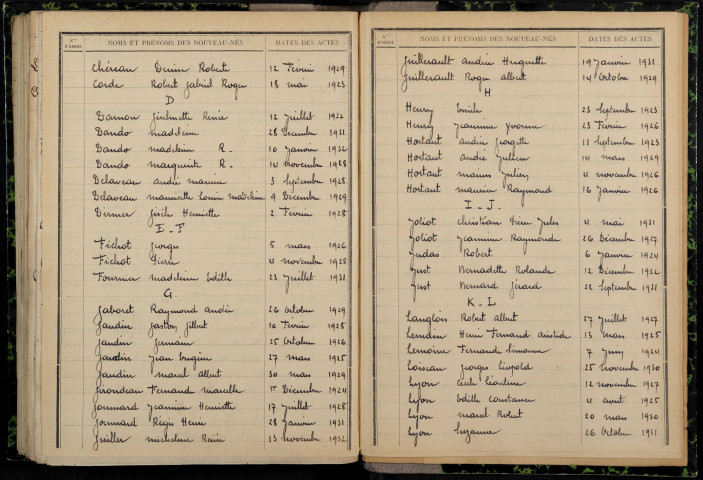 Nos D'ORDRE NOMS ET PRÉNOMS DES NOUVEAU-NÉS DATES DES ACTES
Chéreau Denise Roberte 12 Février 1929
Corde Robert Gabriel Roger 18 mai 1923
D
Damon Guilmette Renée 12 Juillet 1922
Dando madeleine 28 Decembre 1931
Dando madeleine R. 10 Janvier 1932
Dando marguerite R. 14 novembre 1928
Delaveau andré maurice 3 Septembre 1928
Delaveau mauricette Louise madeleine 9 Décembre 1929
Dernier Gisèle Henriette 2 Février 1928
E - F
Fichot Georges 5 mars 1926
Fichot Pierre 4 novembre 1928
Fournier madeleine Edith 23 Juillet 1931
G.
Gaboret Raymond andré 26 Octobre 1929
Gaudin Gaston Gilbert 16 Février 1925
Gaudin Germain 25 Octobre 1926
Gaudin Jean Eugène 27 mars 1925
Gaudin marcel albert 30 mars 1929
Girondeau Fernande marcelle 1er Décembre 1924
Gommard Jeannine Henriette 17 Juillet 1928
Gommard Régis Henri 28 Janvier 1931
Guiller micheline Renée 13 novembre 1932
Nos D'ORDRE NOMS ET PRÉNOMS DES NOUVEAU-NÉS DATES DES ACTES
Guillerault andrée Huguette 19 Janvier 1931
Guillerault Roger albert 14 Octobre 1929
H
Henry Emile 23 Septembre 1923
Henry Jeannine Yvonne 23 Février 1926
Hortant andrée Georgette 11 Septembre 1923
Hortant andré Julien 14 mars 1929
Hortant maurice Julien 4 novembre 1926
Hortant maurice Raymond 16 Janvier 1926
I - J.
Joliot Christian Jules 4 mai 1931
Joliot Jeannine Raymonde 26 Décembre 1927
Judas Robert 6 Janvier 1924
Just Bernadette Rolande 12 Décembre 1932
Just Bernard Gérard 22 Septembre 1931
K - L
Langlois Robert albert 27 Juillet 1927
Lemoine Henri Fernand aristide 13 mars 1925
Lemoine Fernande Simonne 7 Juin 1924
Loiseau Georges Léopold 25 novembre 1930
Lyon Cécile Léontine 12 novembre 1927
Lyon Edith Constance 4 août 1925
Lyon marcel Robert 20 mars 1930
Lyon Suzanne 26 Octobre 1931